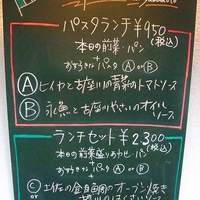 パスタランチ ¥950
(税込)
本日の前菜・パン
パスタ Ⓐ or Ⓑ
Ⓐ ヒイカと古座川の青菜のトマトソース
Ⓑ 永魚と古座川やさいのオイル
ソース
ランチセット ¥2300
(税込)
本日の前菜盛りあわせ・パン
パスタ Ⓐ or Ⓑ
Ⓒ 土佐の金目鯛のオーブン焼き
or